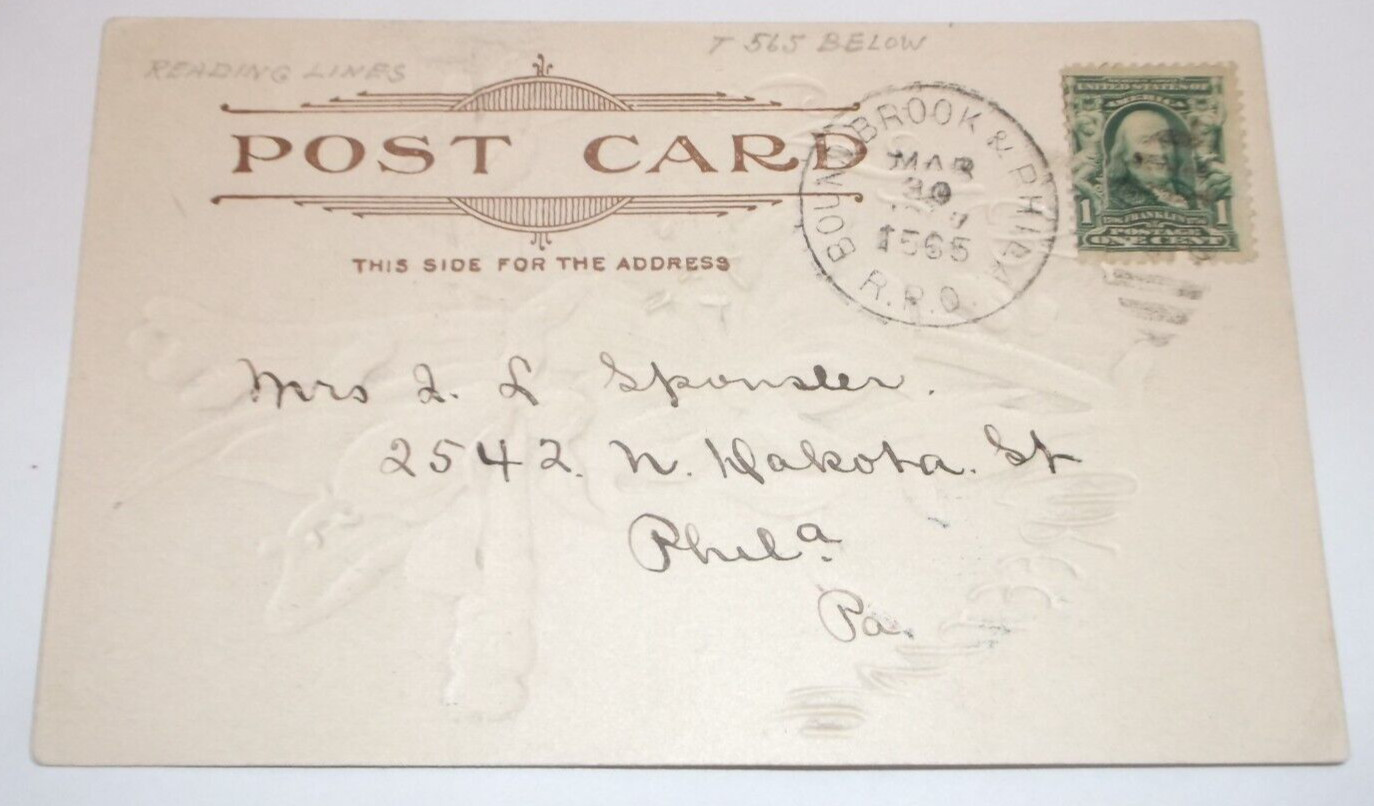 READING LINES
T 565 BELOW
POST CARD
THIS SIDE FOR THE ADDRESS
BOUND BROOK & PHILA
MAR
30
R.P.O.
UNITED STATES OF
AMERICA
1 FRANKLIN 1
POSTAGE
ONE CENT
Mrs I. L Sponsler.
2542. N. Dakota. St
Phila.
Pa.